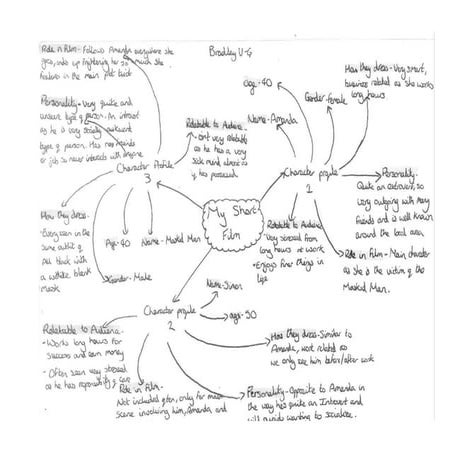 Role in Film - Follows Amanda everywhere she
goes, ends up frightening her so much she
features in the main plot
Bradley U-G
Personality - Very quite and
unsure type of person. An introvert
as he is a very socially awkward
type of person. Has no friends
or job so never interacts with anyone
Character Profile
3
Relatable to Audience
- Isn't very relatable
as he has a very
sick mind almost as
if he's possessed
Age - 40
Gender - Female
Name - Amanda
How they dress - Very smart,
business related as she works
long hours
Character profile
1
Personality -
Quite an extrovert, so
very outgoing with many
friends and is well known
around the local area
How they dress -
Always seen in the
same outfit of
all black with
a white blank
mask
Age - 40
Name - Masked Man
Gender - Male
My Short
Film
Relatable to Audience
Very stressed from
long hours at work
- Enjoys finer things in
life
Role in Film - Main character
as she is the victim of the
Masked Man.
Name - Simon
Character profile
2
age - 50
Relatable to Audience -
- Works long hours for
success and earn money
- Often seen very stressed
as he has responsibility of care
Role in Film
Not included often, only for main
scene involving him, Amanda and
How they dress - Similar to
Amanda, work related as
we only see him before/after work
Personality - Opposite to Amanda in
the way he's quite an Introvert and
will avoid wanting to socialise.